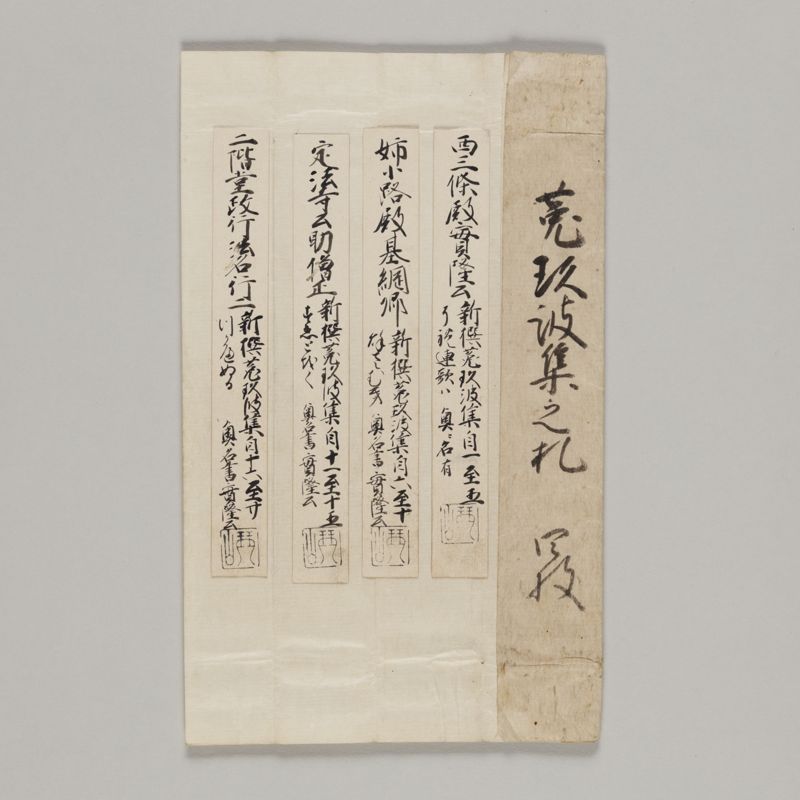 菟玖波集之札 四枚
西三條殿實隆公 新撰菟玖波集自一至五
連歌ハ 奥ニ名有
姉小路殿基綱卿 新撰菟玖波集自六至十
奥名書實隆公
定法寺公助僧正 新撰菟玖波集自十一至十五
奥名書實隆公
二階堂政行法名行二 新撰菟玖波集自十六至廿
奥名書實隆公